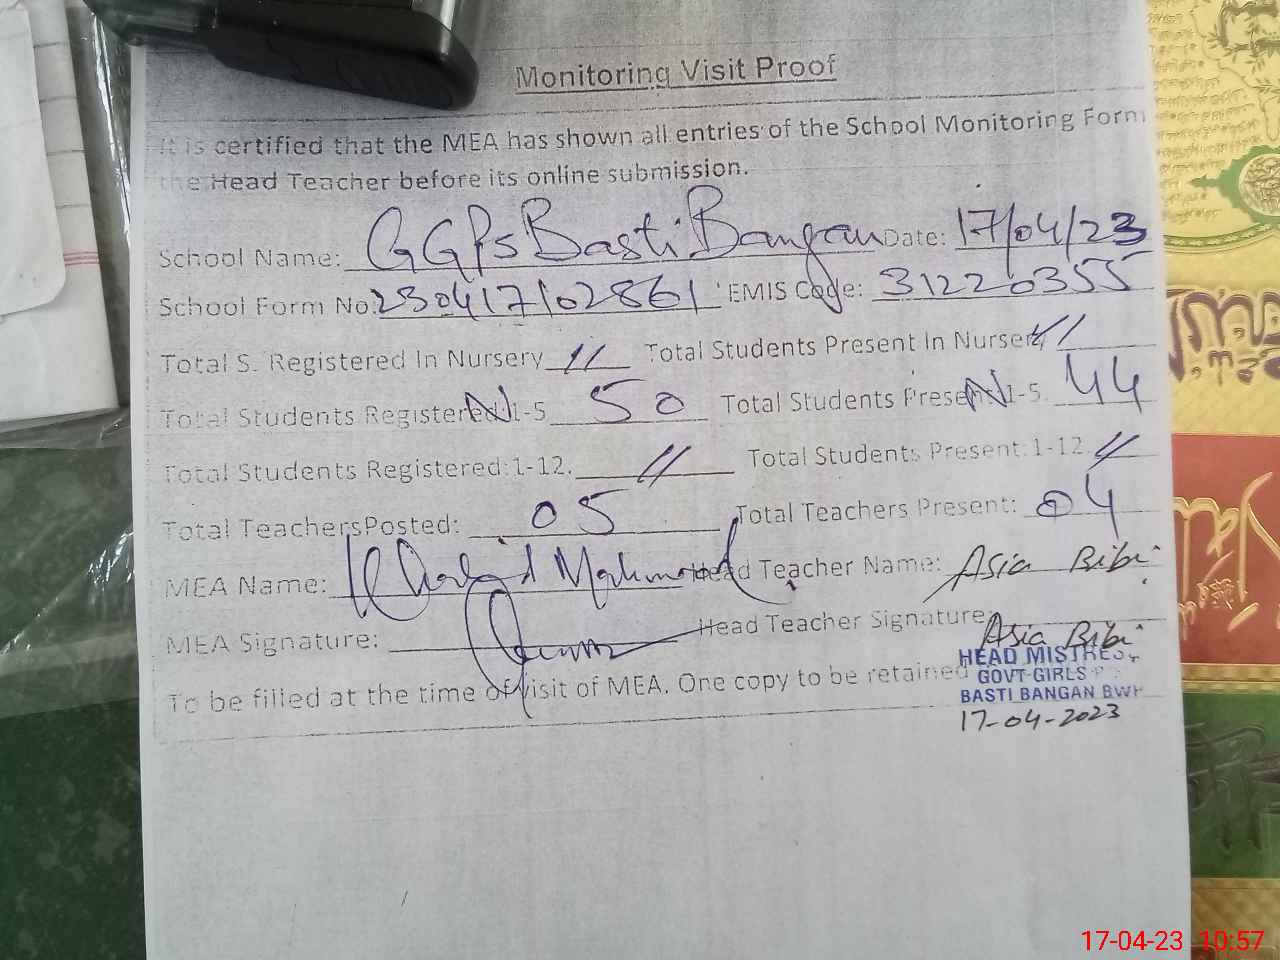 Monitoring Visit Proof
It is certified that the MEA has shown all entries of the School Monitoring Form
the Head Teacher before its online submission.
School Name: GGPS Basti Bangan Date: 17/04/23
School Form No: 230417102861 EMIS Code: 31220355
Total S. Registered In Nursery // Total Students Present In Nursery //
Total Students Registered: N-5 50 Total Students Present: N-5. 44
Total Students Registered: 1-12. // Total Students Present: 1-12. //
Total Teachers Posted: 05 Total Teachers Present: 04
MEA Name: Khalid Mahmood Head Teacher Name: Asia Bibi
MEA Signature: Head Teacher Signature: Asia Bibi
To be filled at the time of visit of MEA. One copy to be retained
HEAD MISTRESS
GOVT-GIRLS P
BASTI BANGAN BWP
17-04-2023
17-04-23 10:57